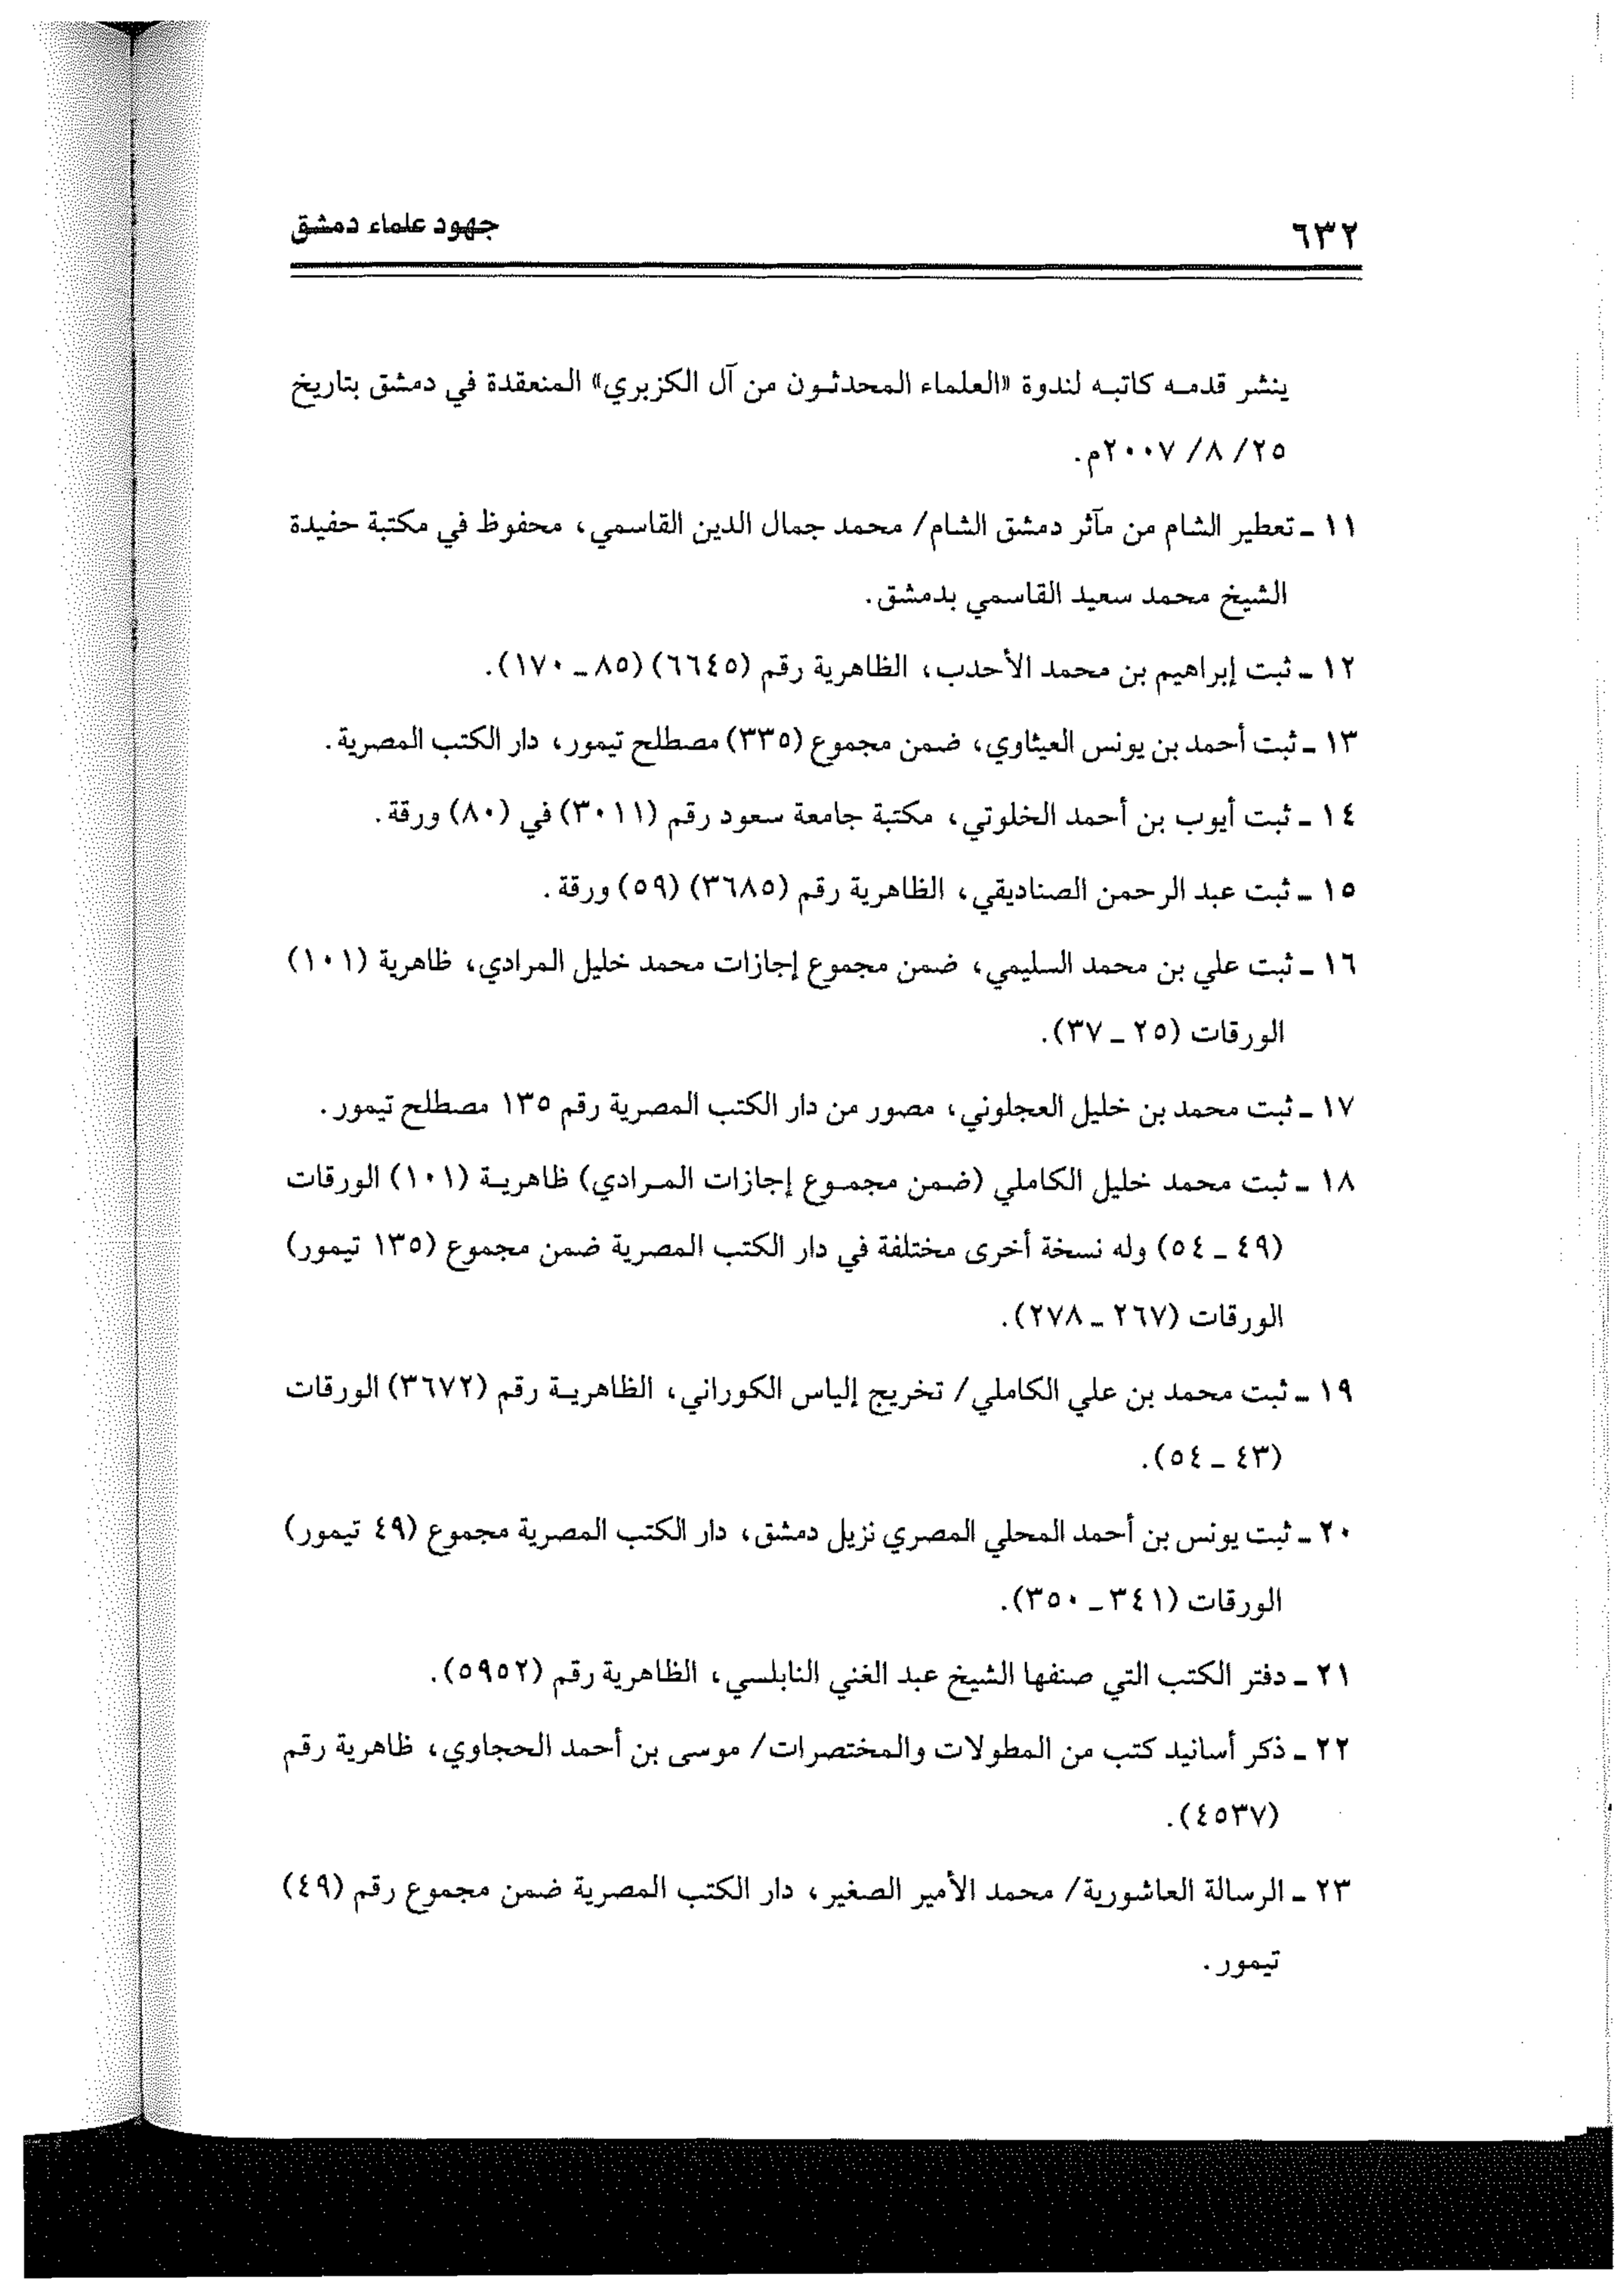 ٦٣٢
جهود علماء دمشق
ينشر قدمه كاتبه لندوة «العلماء المحدثون من آل الكزبري» المنعقدة في دمشق بتاريخ
٢٥/ ٨/ ٢٠٠٧م.
١١ - تعطير الشام من مآثر دمشق الشام/ محمد جمال الدين القاسمي، محفوظ في مكتبة حفيدة
الشيخ محمد سعيد القاسمي بدمشق.
١٢ - ثبت إبراهيم بن محمد الأحدب، الظاهرية رقم (٦٦٤٥) (٨٥ - ١٧٠).
١٣ - ثبت أحمد بن يونس العيثاوي، ضمن مجموع (٣٣٥) مصطلح تيمور، دار الكتب المصرية.
١٤ - ثبت أيوب بن أحمد الخلوتي، مكتبة جامعة سعود رقم (٣٠١١) في (٨٠) ورقة.
١٥ - ثبت عبد الرحمن الصناديقي، الظاهرية رقم (٣٦٨٥) (٥٩) ورقة.
١٦ - ثبت علي بن محمد السليمي، ضمن مجموع إجازات محمد خليل المرادي، ظاهرية (١٠١)
الورقات (٢٥ - ٣٧).
١٧ - ثبت محمد بن خليل العجلوني، مصور من دار الكتب المصرية رقم ١٣٥ مصطلح تيمور.
١٨ - ثبت محمد خليل الكاملي (ضمن مجموع إجازات المرادي) ظاهرية (١٠١) الورقات
(٤٩ - ٥٤) وله نسخة أخرى مختلفة في دار الكتب المصرية ضمن مجموع (١٣٥ تيمور)
الورقات (٢٦٧ - ٢٧٨).
١٩ - ثبت محمد بن علي الكاملي/ تخريج إلياس الكوراني، الظاهرية رقم (٣٦٧٢) الورقات
(٤٣ - ٥٤).
٢٠ - ثبت يونس بن أحمد المحلي المصري نزيل دمشق، دار الكتب المصرية مجموع (٤٩ تيمور)
الورقات (٣٤١ - ٣٥٠).
٢١ - دفتر الكتب التي صنفها الشيخ عبد الغني النابلسي، الظاهرية رقم (٥٩٥٢).
٢٢ - ذكر أسانيد كتب من المطولات والمختصرات/ موسى بن أحمد الحجاوي، ظاهرية رقم
(٤٥٣٧).
٢٣ - الرسالة العاشورية/ محمد الأمير الصغير، دار الكتب المصرية ضمن مجموع رقم (٤٩)
تيمور.